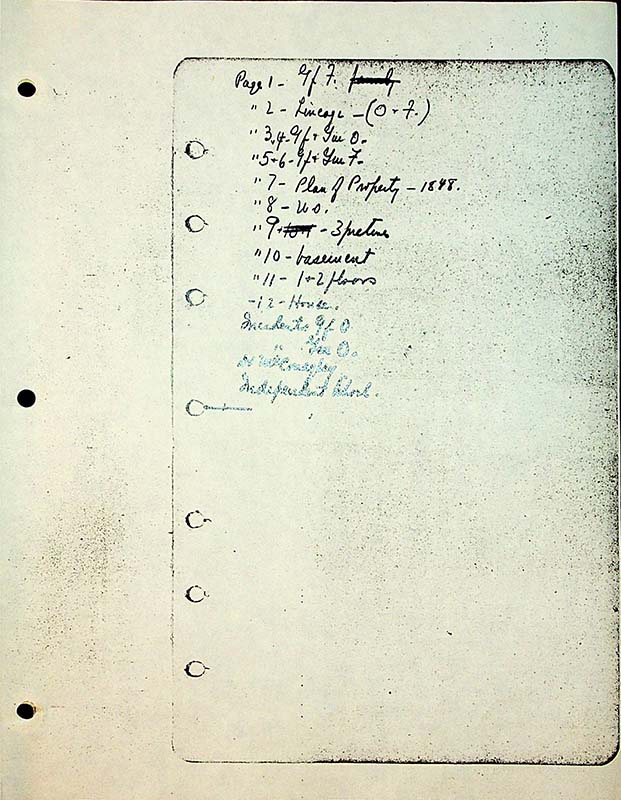 Page 1 - Gf F. family
" 2 - Lineage - (O + F.)
" 3,4 - Gf + Gm O.
" 5+6 - Gf + Gm F.
" 7 - Plan of Property - 1848.
" 8 -
" 9 - 3 pictures
" 10 - basement
" 11 - 1+2 floors
- 12 - House.
Incidents Gf O
" Gm O.
Independent School.